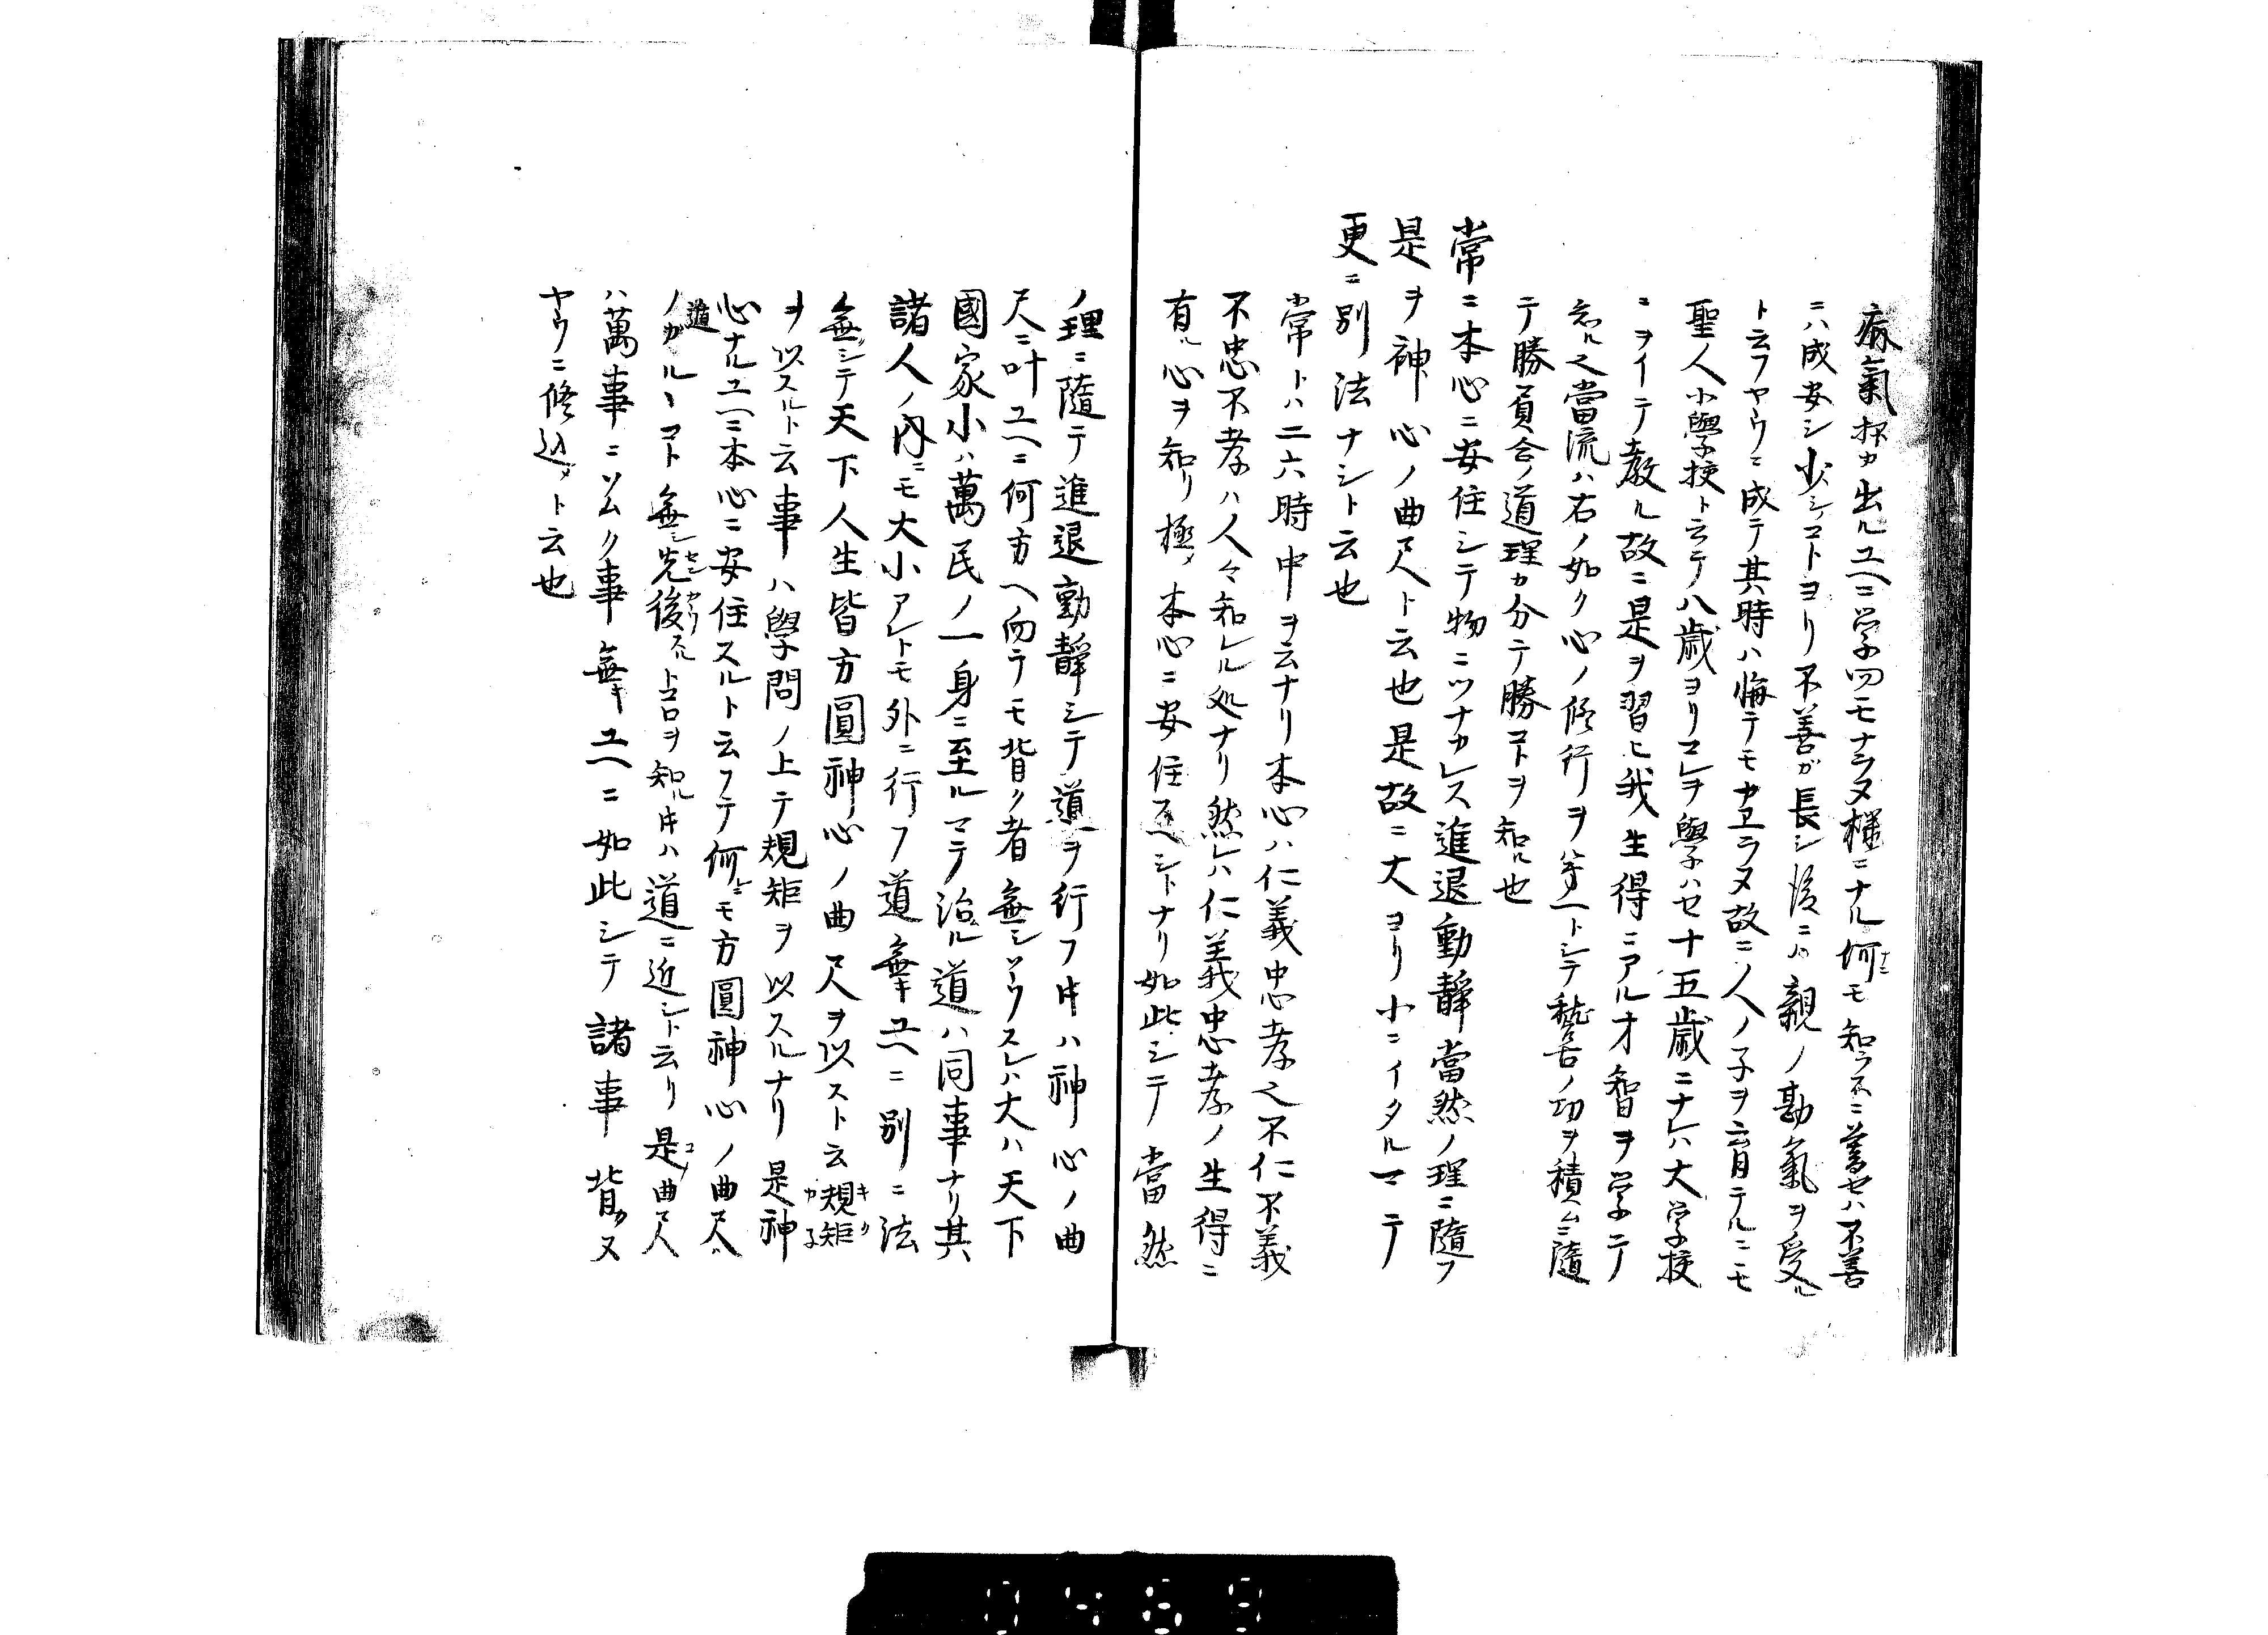 病氣抔カ出ルユヘニ学問モナラヌ様ニナル何モ知ラスニ暮セハ不善
ニハ成安シ少シノコトヨリ不善ガ長シ後ニハ親ノ勘氣ヲ受ル
ト云フヤウニ成テ其時ハ悔テモカヱラヌ故ニ人ノ子ヲ育テルニモ
聖人小學校ト云テ八歳ヨリコレヲ學ハセ十五歳ニナレハ大学校
ニヲイテ教ル故ニ是ヲ習ヒ我生得ニアル才智ヲ学テ
知ル之當流ハ右ノ如ク心ノ修行ヲ第一トシテ稽古ノ功ヲ積ムニ隨
テ勝負合ノ道理カ分テ勝コトヲ知ル也
常ニ本心ニ安住シテ物ニツナカレス進退動靜當然ノ理ニ隨フ
是ヲ神心ノ曲尺ト云也是故ニ大ヨリ小ニイタルマテ
更ニ別法ナシト云也
常トハ二六時中ヲ云ナリ本心ハ仁義忠孝之不仁不義
不忠不孝ハ人々知レル処ナリ然レハ仁義忠孝ノ生得ニ
有ル心ヲ知リ極メ本心ニ安住シトナリ如此シテ當然
ノ理ニ隨テ進退動靜シテ道ヲ行フ時ハ神心ノ曲
尺ニ叶ユヘニ何方ヘ向テモ背ク者無シソウスレハ大ハ天下
國家小ハ萬民ノ一身ニ至ルマテ治ル道ハ同事ナリ其
諸人ノ内ニモ大小アレトモ外ニ行フ道無キユヘニ別ニ法
無シテ天下人生皆方圓神心ノ曲尺ヲ以スト云規矩
ヲ以スルト云事ハ學問ノ上テ規矩ヲ以スルナリ是神
心ナルユヘニ本心ニ安住スルト云フテ何ニモ方圓神心ノ曲尺ハ
遁ノカルヽコト無シ先後スルトコロヲ知ル時ハ道ニ近シト云リ是曲尺
ハ萬事ニソムク事無キユヘニ如此シテ諸事背カヌ
ヤウニ修メト云也